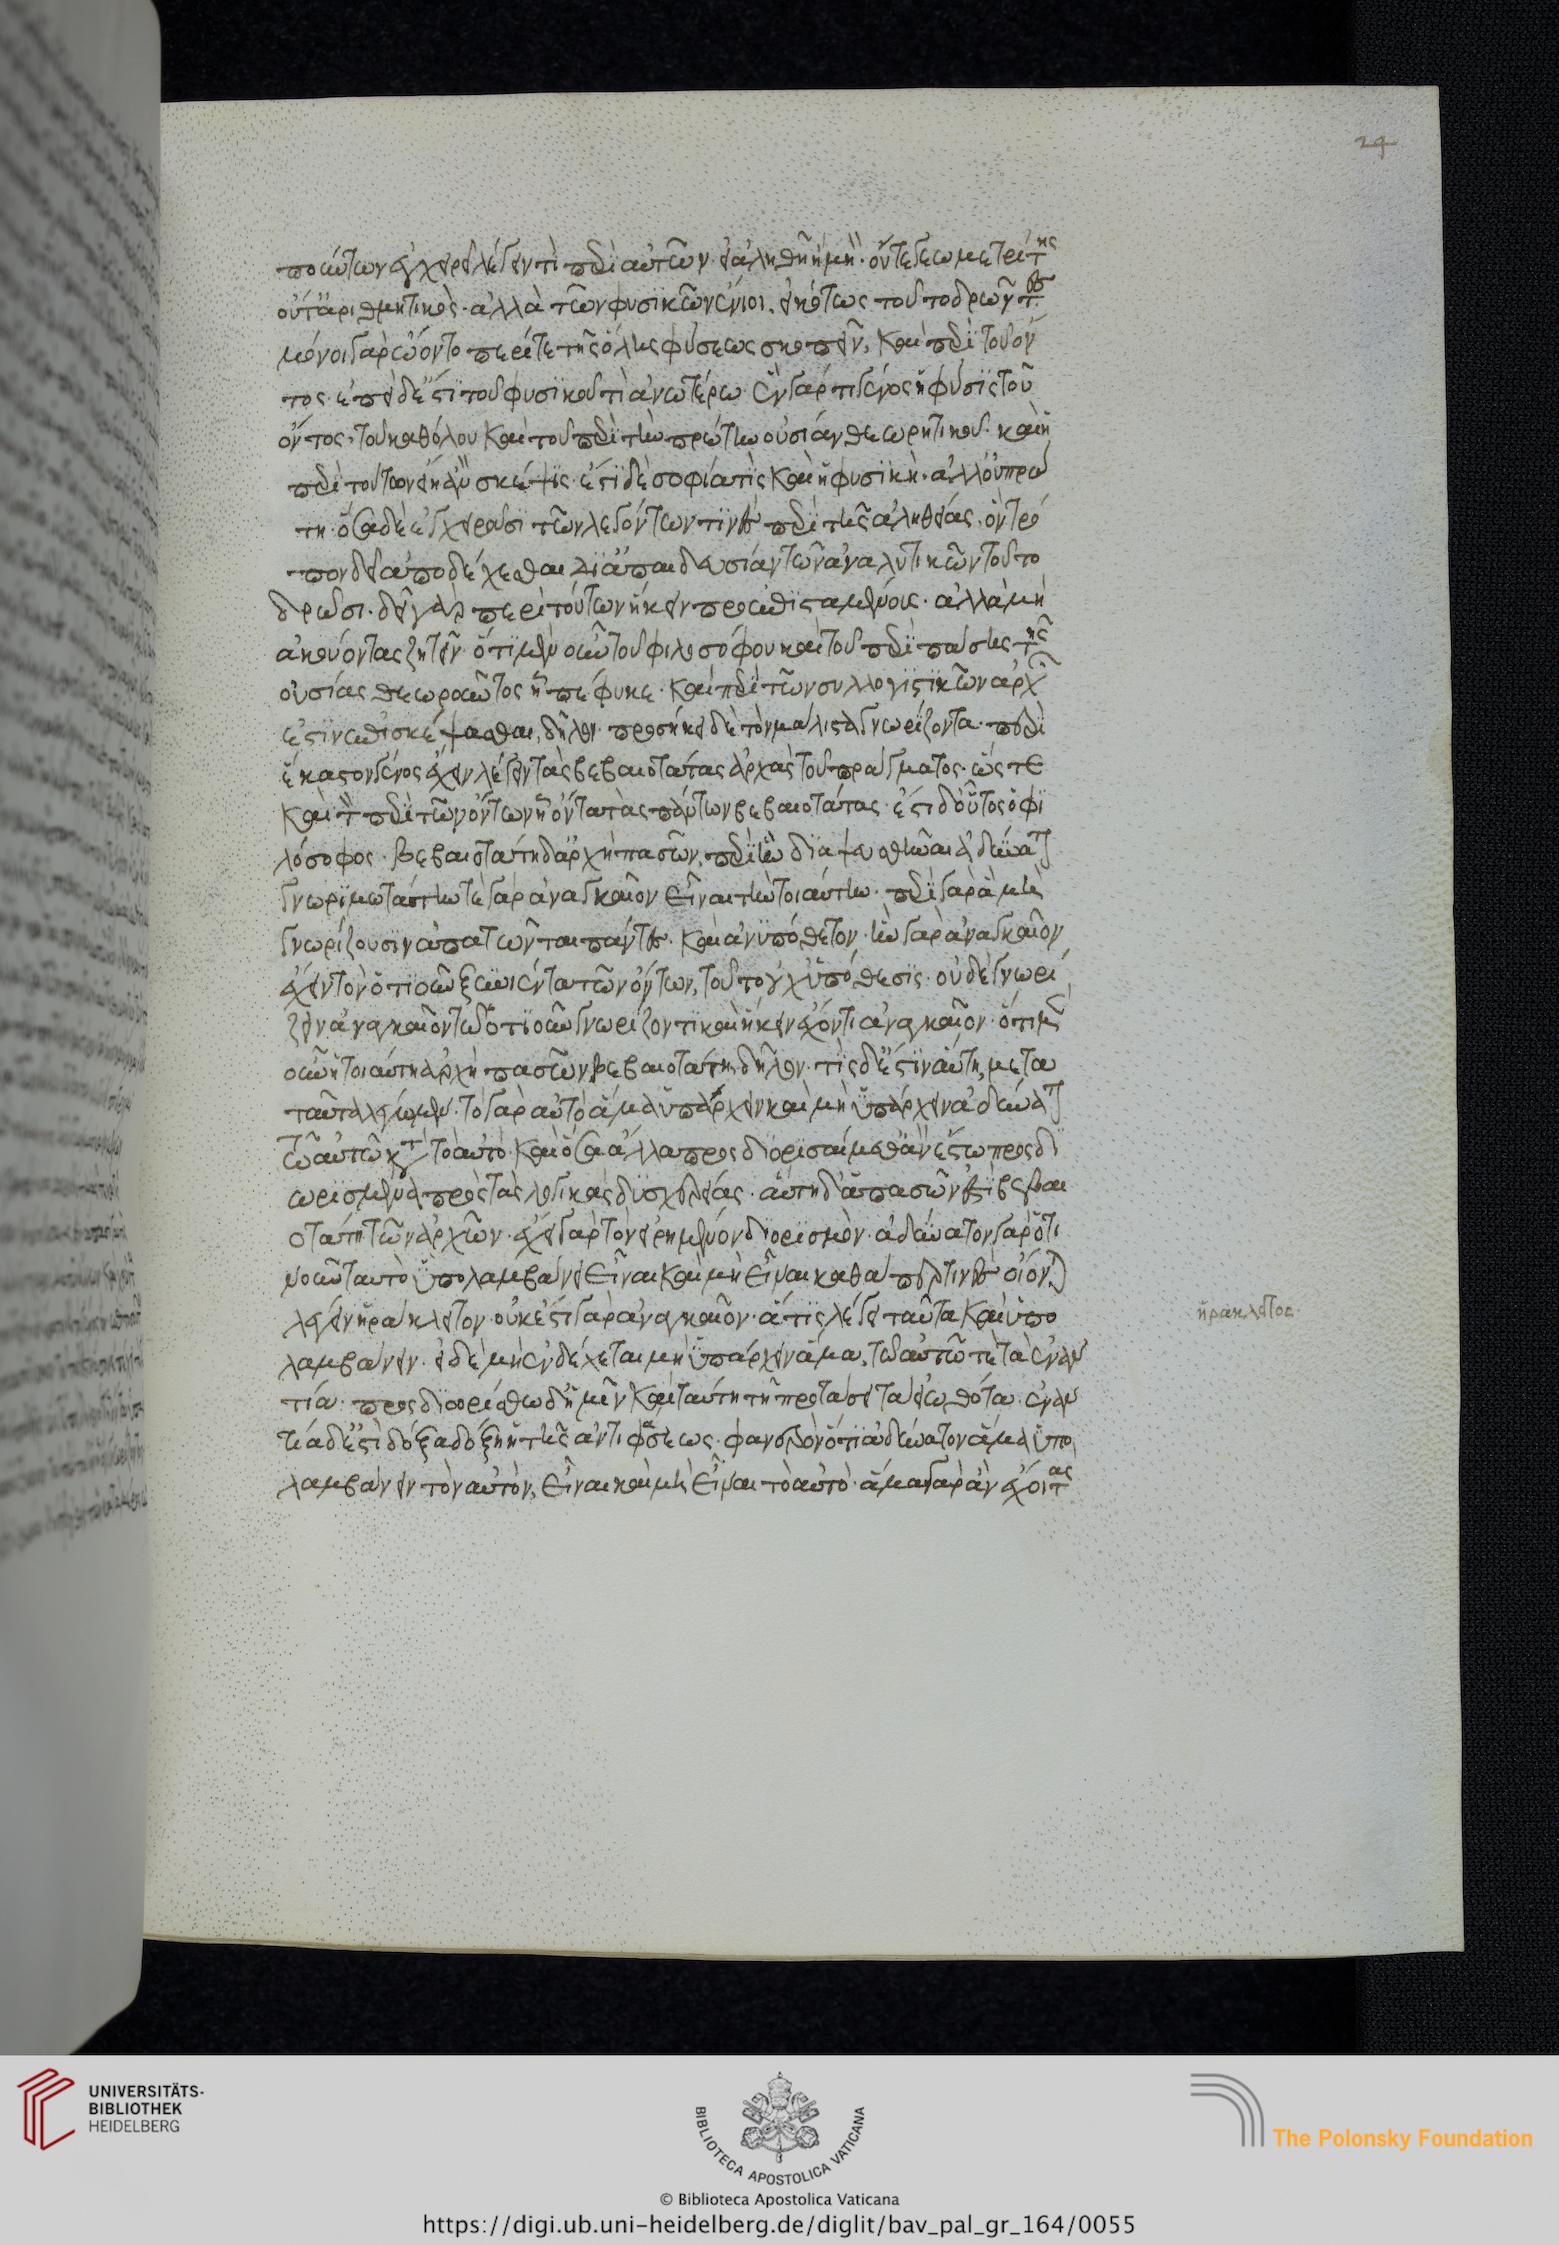 24
π οσκόντων ἐγχειρεῖ λέγειν τι περὶ αὐτῶν εἰ ἀληθῆ ἢ μή· οὔτε γεωμέτρης
οὔτ' ἀριθμητικὸς· ἀλλὰ τῶν φυσικῶν ἔνιοι, εἰκότως τοῦτο δρῶντες
μόνοι γὰρ ᾤοντο περί τε τῆς ὅλης φύσεως σκοπεῖν, καὶ περὶ τοῦ ὄν
τος· ἐπεὶ δέ ἐστι τοῦ φυσικοῦ τὶ ἀνωτέρω ἓν γάρ τι γένος ἡ φύσις τοῦ
ὄντος, τοῦ καθόλου καὶ τοῦ περὶ τὴν πρώτην οὐσίαν θεωρητικοῦ καὶ ἡ
περὶ τούτων εἴη ἂν σκέψις· ἔστι δὲ σοφία τὶς καὶ ἡ φυσικὴ· ἀλλ' οὐ πρώ
τη· ὅσα δὲ ἐγχειροῦσι τῶν λεγόντων τινὲς περὶ τῆς ἀληθείας, ὃν τρό
πον δεῖ ἀποδέχεσθαι δι' ἀπαιδευσίαν τῶν ἀναλυτικῶν τοῦτο
δρῶσι· δεῖ γὰρ περὶ τούτων ἥκειν προεπισταμένους· ἀλλὰ μὴ
ἀκούοντας ζητεῖν· ὅτι μὲν οὖν τοῦ φιλοσόφου καὶ τοῦ περὶ πάσης τῆς
οὐσίας θεωροῦντος ἧ πέφυκε· καὶ περὶ τῶν συλλογιστικῶν ἀρχῶν
ἐστὶν ἐπισκέψασθαι, δῆλον· προσήκει δὲ τὸν μάλιστα γνωρίζοντα περὶ
ἕκαστον γένος ἔχειν λέγειν τὰς βεβαιοτάτας ἀρχὰς τοῦ πράγματος· ὥστε
καὶ τὸν περὶ τῶν ὄντων ἧ ὄντα τὰς πάντων βεβαιοτάτας· ἔστι δ' οὗτος ὁ φι
λόσοφος· βεβαιοτάτη δ' ἀρχὴ πασῶν, περὶ ἣν διαψευσθῆναι ἀδύνατον
γνωριμωτάτην τε γὰρ ἀναγκαῖον εἶναι τὴν τοιαύτην· περὶ γὰρ ἃ μὴ
γνωρίζουσιν ἀπατῶνται πάντες· καὶ ἀνυπόθετον· ἣν γὰρ ἀναγκαῖον
ἔχειν τὸν ὁτιοῦν ξυνιέντα τῶν ὄντων, τοῦτο οὐχ ὑπόθεσις· ὃ δὲ γνωρί
ζειν ἀναγκαῖον τῷ ὁτιοῦν γνωρίζοντι καὶ ἥκειν ἔχοντι ἀναγκαῖον· ὅτι μὲν
οὖν ἡ τοιαύτη ἀρχὴ πασῶν βεβαιοτάτη, δῆλον· τίς δ' ἐστὶν αὕτη, μετὰ
ταῦτα λέγωμεν· τὸ γὰρ αὐτὸ ἅμα ὑπάρχειν καὶ μὴ ὑπάρχειν ἀδύνατον
τῷ αὐτῷ κατὰ τὸ αὐτὸ καὶ ὅσα ἄλλα προσδιορισαίμεθ' ἂν ἔστω προσδι
ωρισμένα πρὸς τὰς λογικὰς δυσχερείας· αὕτη δ' ἁπασῶν ἐστὶ βεβαι
οτάτη τῶν ἀρχῶν· ἔχει γὰρ τὸν εἰρημένον διορισμὸν· ἀδύνατον γὰρ ὅτι
νοῦν ταυτὸ ὑπολαμβάνειν εἶναι καὶ μὴ εἶναι καθάπερ τινὲς οἴονται
λέγειν ἡράκλειτον· οὐκ ἔστι γὰρ ἀναγκαῖον· ἅ τις λέγει ταῦτα καὶ ὑπο
λαμβάνειν· εἰ δὲ μὴ ἐνδέχεται μὴ ὑπάρχειν ἅμα, τῷ αὐτῷ τε τὰ ἐναν
τία· προσδιωρίσθω δ' ἡμῖν καὶ ταύτῃ τῇ προτάσει τὰ εἰωθότα· ἐναν
τία δ' ἐστὶ δόξα δόξῃ ἡ τῆς ἀντιφάσεως· φανερὸν ὅτι ἀδύνατον ἅμα ὑπο
λαμβάνειν τὸν αὐτὸν, εἶναι καὶ μὴ εἶναι τὸ αὐτὸ· ἅμα γὰρ ἂν ἔχοι τὰς
ἡράκλειτος·
UNIVERSITÄTS-
BIBLIOTHEK
HEIDELBERG
BIBLIOTECA APOSTOLICA VATICANA
The Polonsky Foundation
© Biblioteca Apostolica Vaticana
https://digi.ub.uni-heidelberg.de/diglit/bav_pal_gr_164/0055